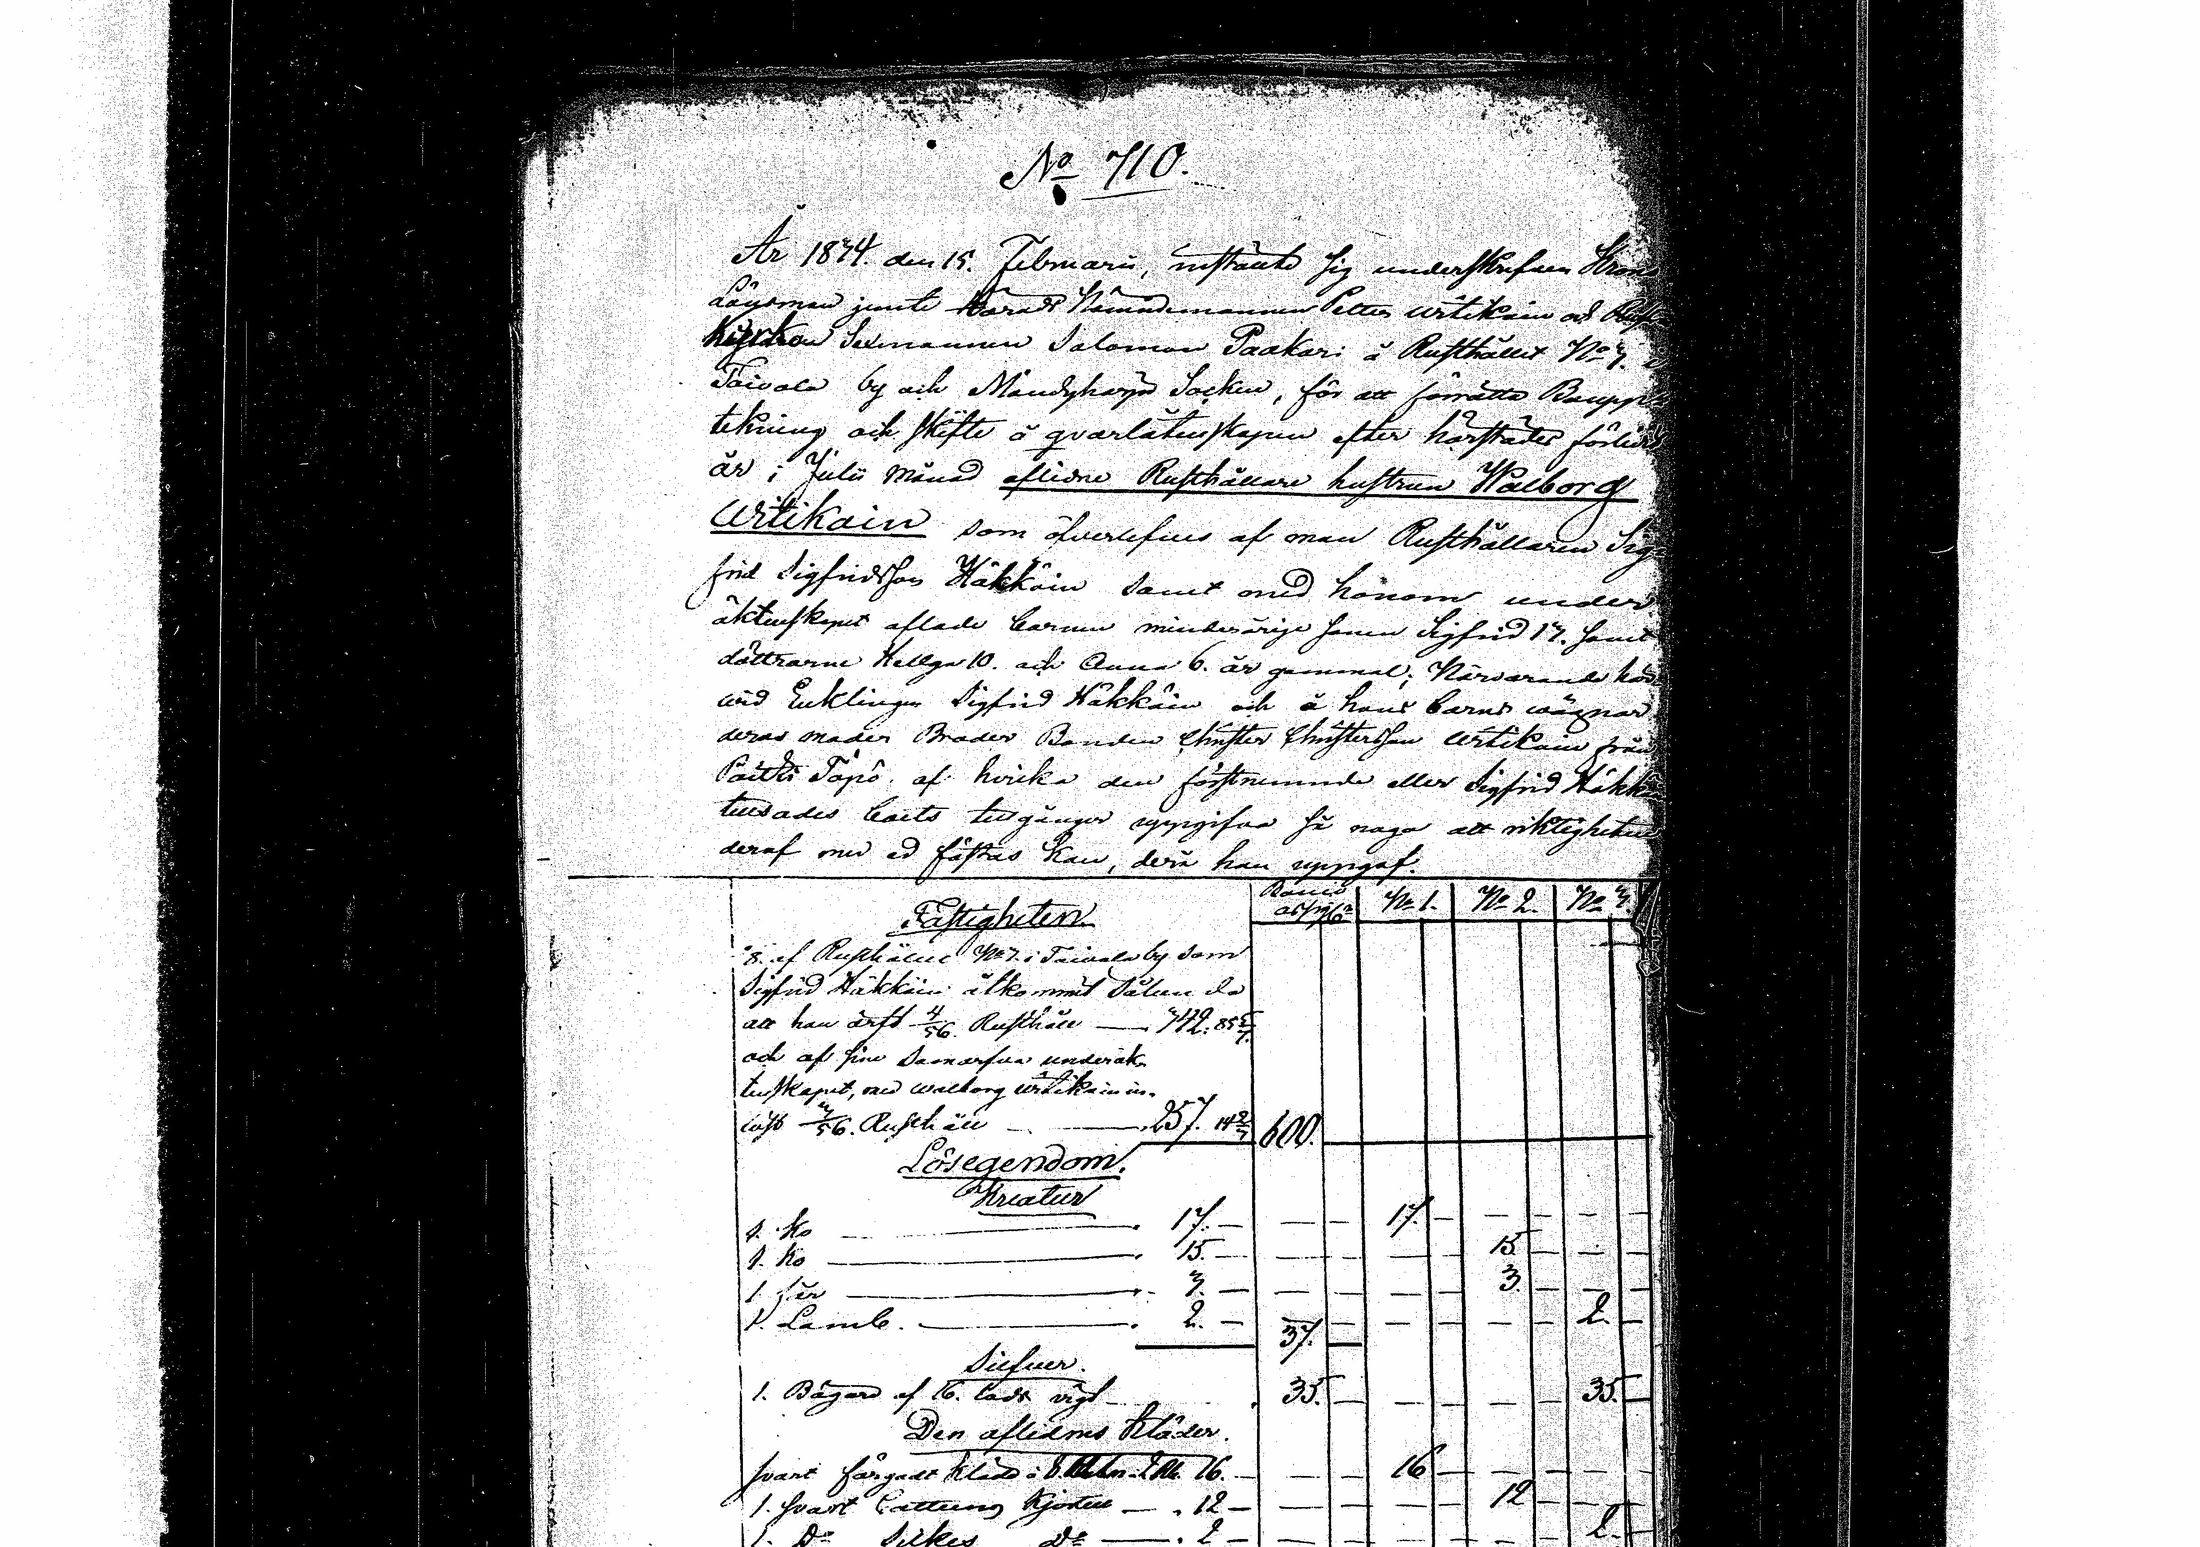 No 710.
År 1834. den 15. Februari, instälte sig underskrefven Krono
Länsman jemte Härads Nämndemannen Petter Wirtikäin och
Kyrkon Sexmannen Salomon Paakari å Rusthållet No 7. i
Toivola by och Mändyharju Socken, för att förrätta Bouppt
tekning och skifte å qvarlåtenskapen efter härstädes förlidit
år i Julii Månad aflidne Rusthållare hustrun Walborg
Wirtikäin som öfverlefves af man Rusthållaren Sig
frid Sigfridsson Häkkäin samt med honom under
äktenskapet aflade barnen minderårige sonen Sigfrid 17. samt
döttrarne Hellga 10. och Anna 6. år gammal; Närvarande här
vid Enklingen Sigfrid Häkkäin och å hans barns vägnar
deras moder Broder Bonden Christer Christersson Wirtikäin från
af hvilka den förstnemnde eller Sigfrid Häkkäin
tillsades boets tillgångar uppgifva så noga att riktigheten
deraf med ed fästas kan, derå han uppgaf.
Boets
No 1. No 2. No 3.
Fastigheten
8. af Rusthållet No 7. i Toivola by som
Sigfrid Häkkäin åtkommit sålun da
att han ärft 4/56. Rusthåll — 342. 85 5/7.
och af sine samarfvar under äk
tenskapet, med Walborg Wirtikäin in
löst 3/56. Rusthåll — 257. 14 2/7 600.
Lösegendom.
Kreatur
1. Ko — 17. — 17.
1. Ko — 15. — 15
1. får — 3. — 3.
1. Lamb. — 2. — 37. 2.
Silfver.
1. Bägare af 16. lods vigt 35. 35.
Den aflidnes Kläder.
svart färgadt Kläde 16. — 16
1. svart Cattuns Kjortel — 12 — 12
1. Do Silkes Do — 2 — 2.